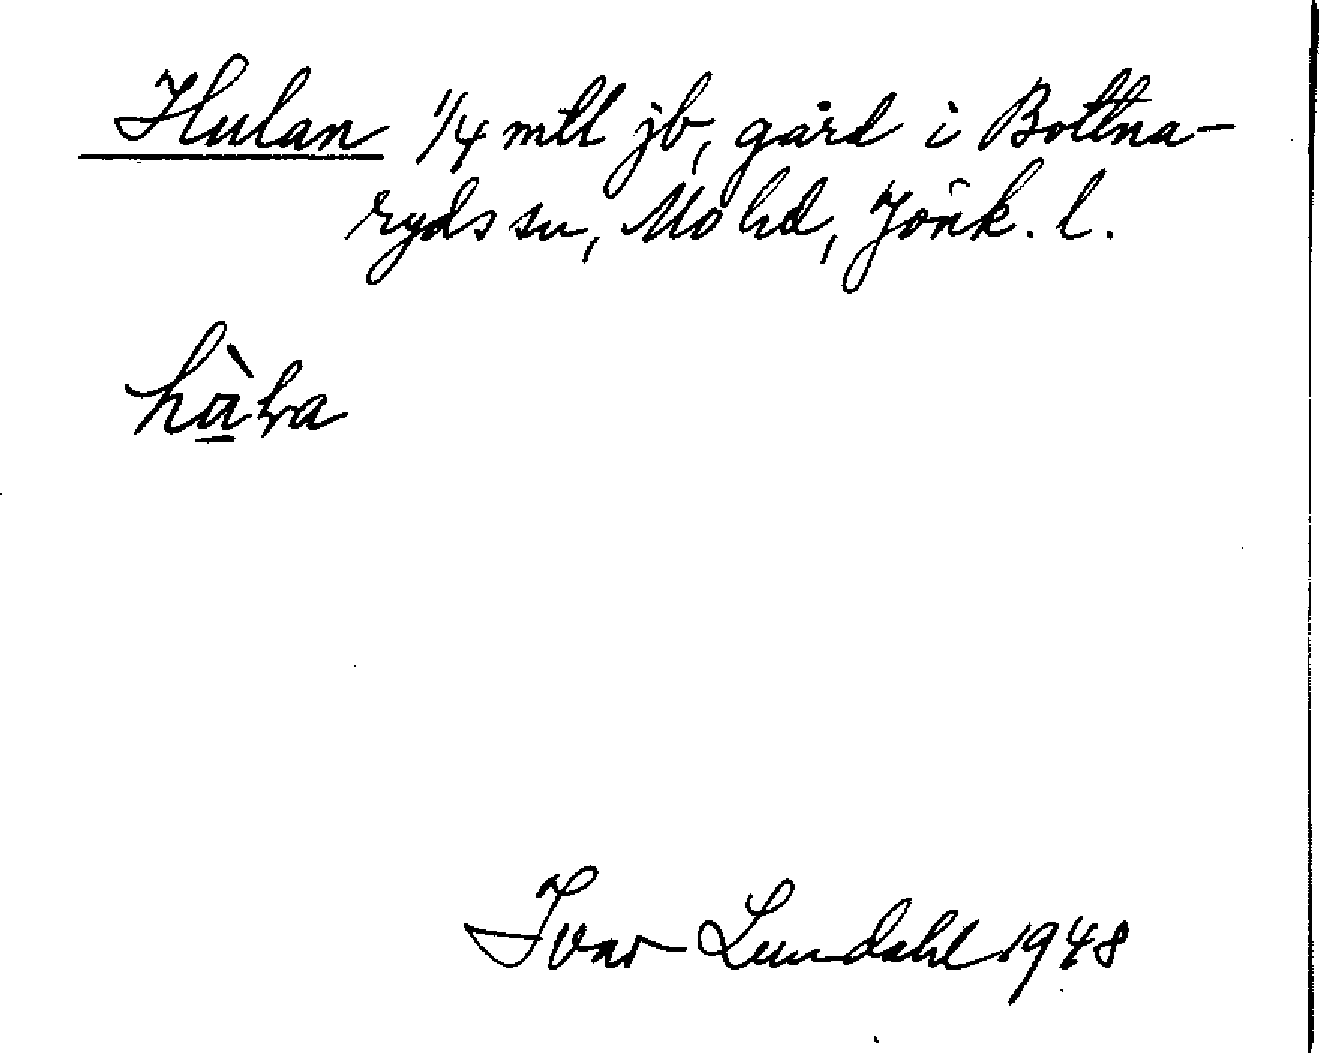 Hulan 1/4 mtl jb, gård i Bottna-
ryds sn, Mo hd, Jönk. l.
Ivar Lundahl 1948